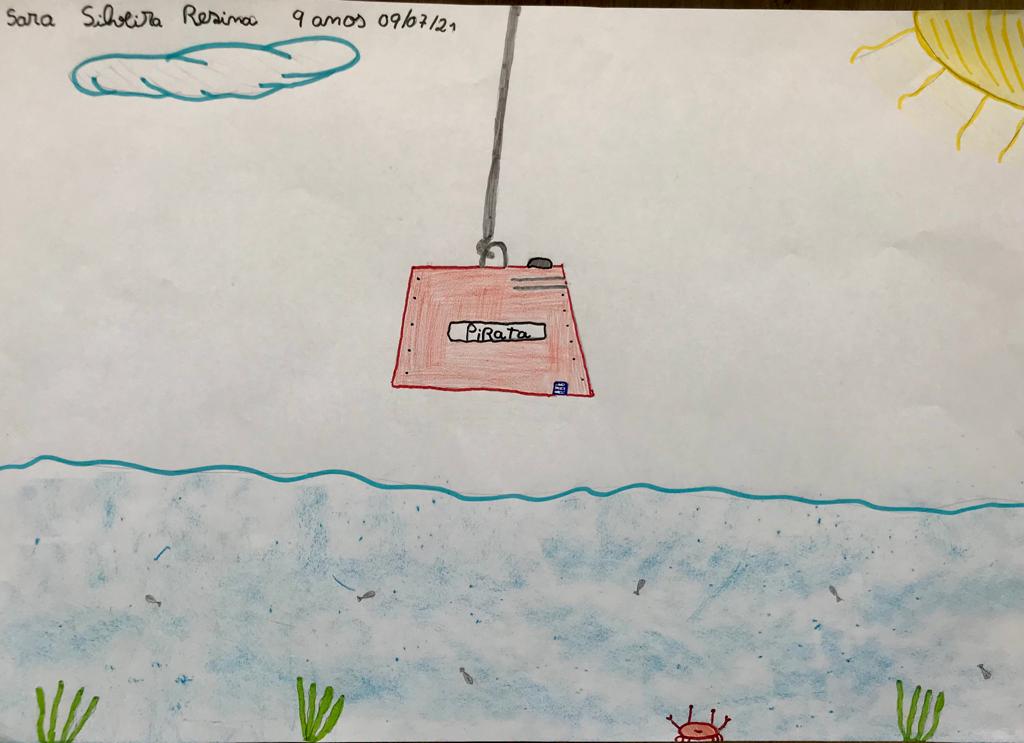 Sara Silveira Resina 9 anos 09/07/21
PiRata